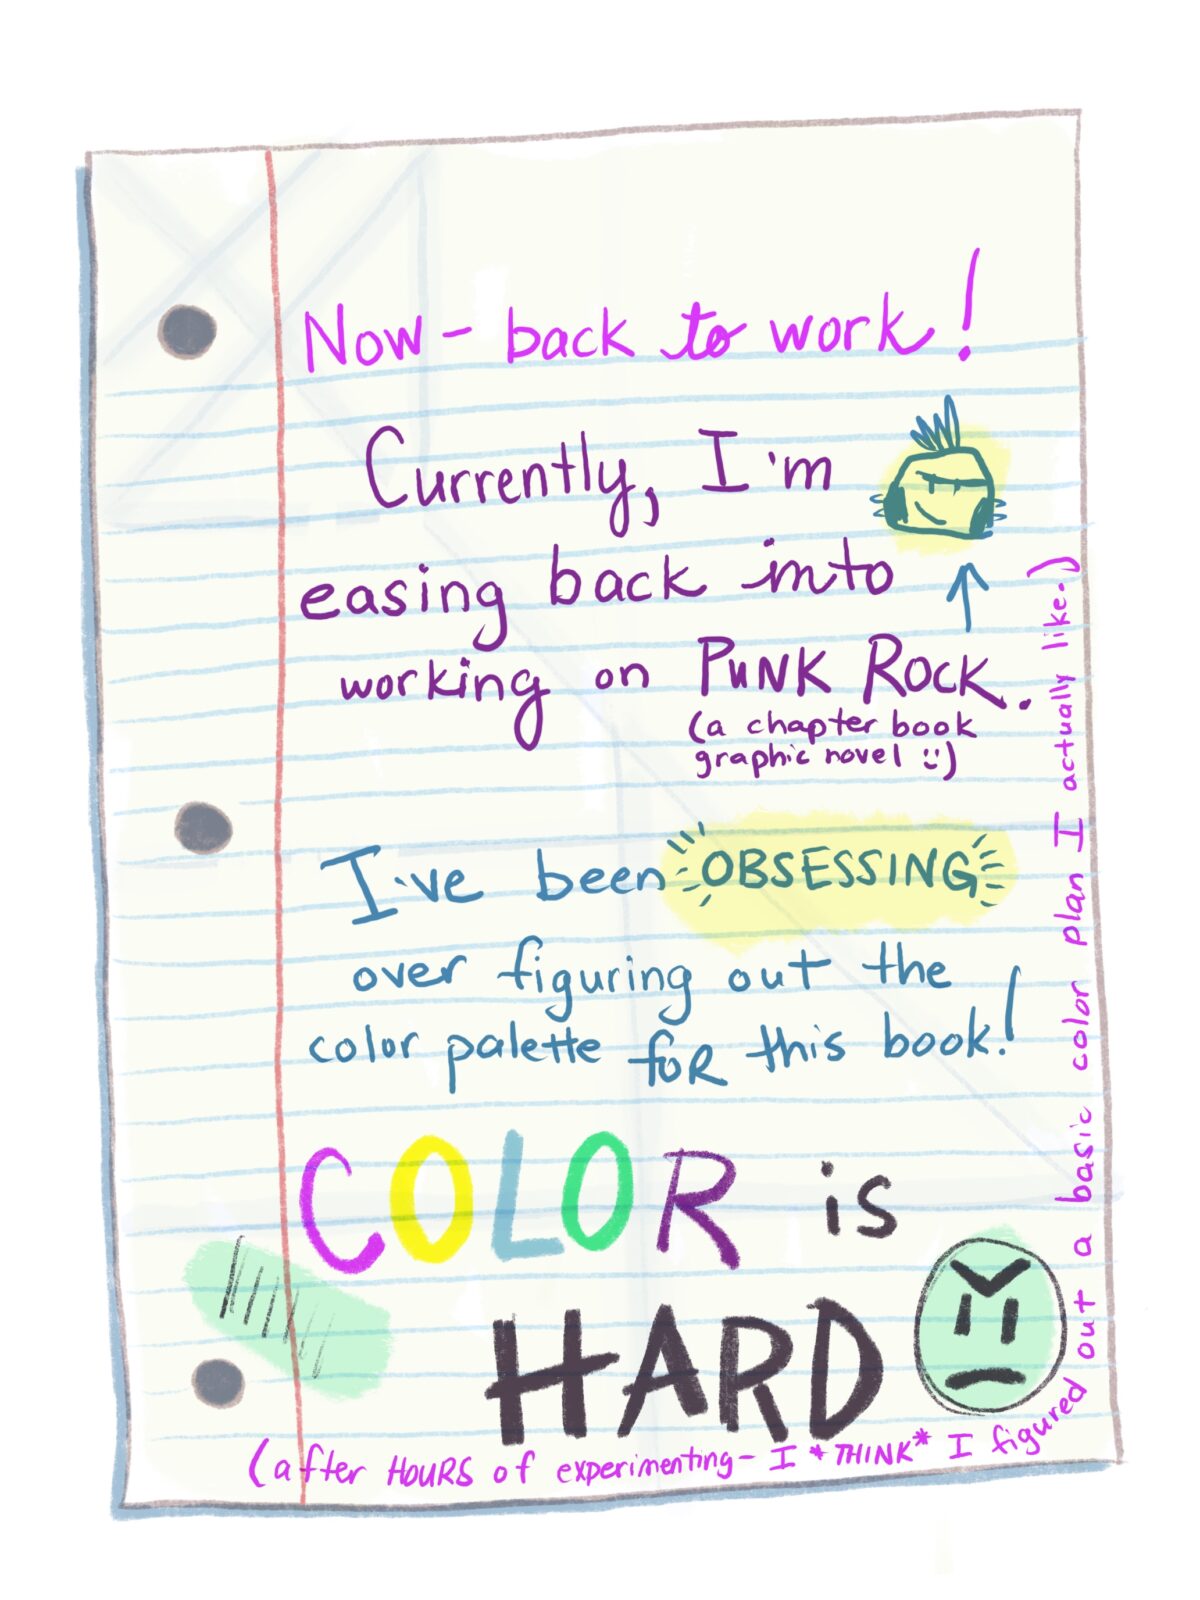 Now - back to work!
Currently, I'm
easing back into
working on PUNK ROCK.
(a chapter book
graphic novel :))
I've been OBSESSING
over figuring out the
color palette for this book!
COLOR is
HARD
(after HOURS of experimenting - I *THINK* I figured out a basic color plan I actually like.)